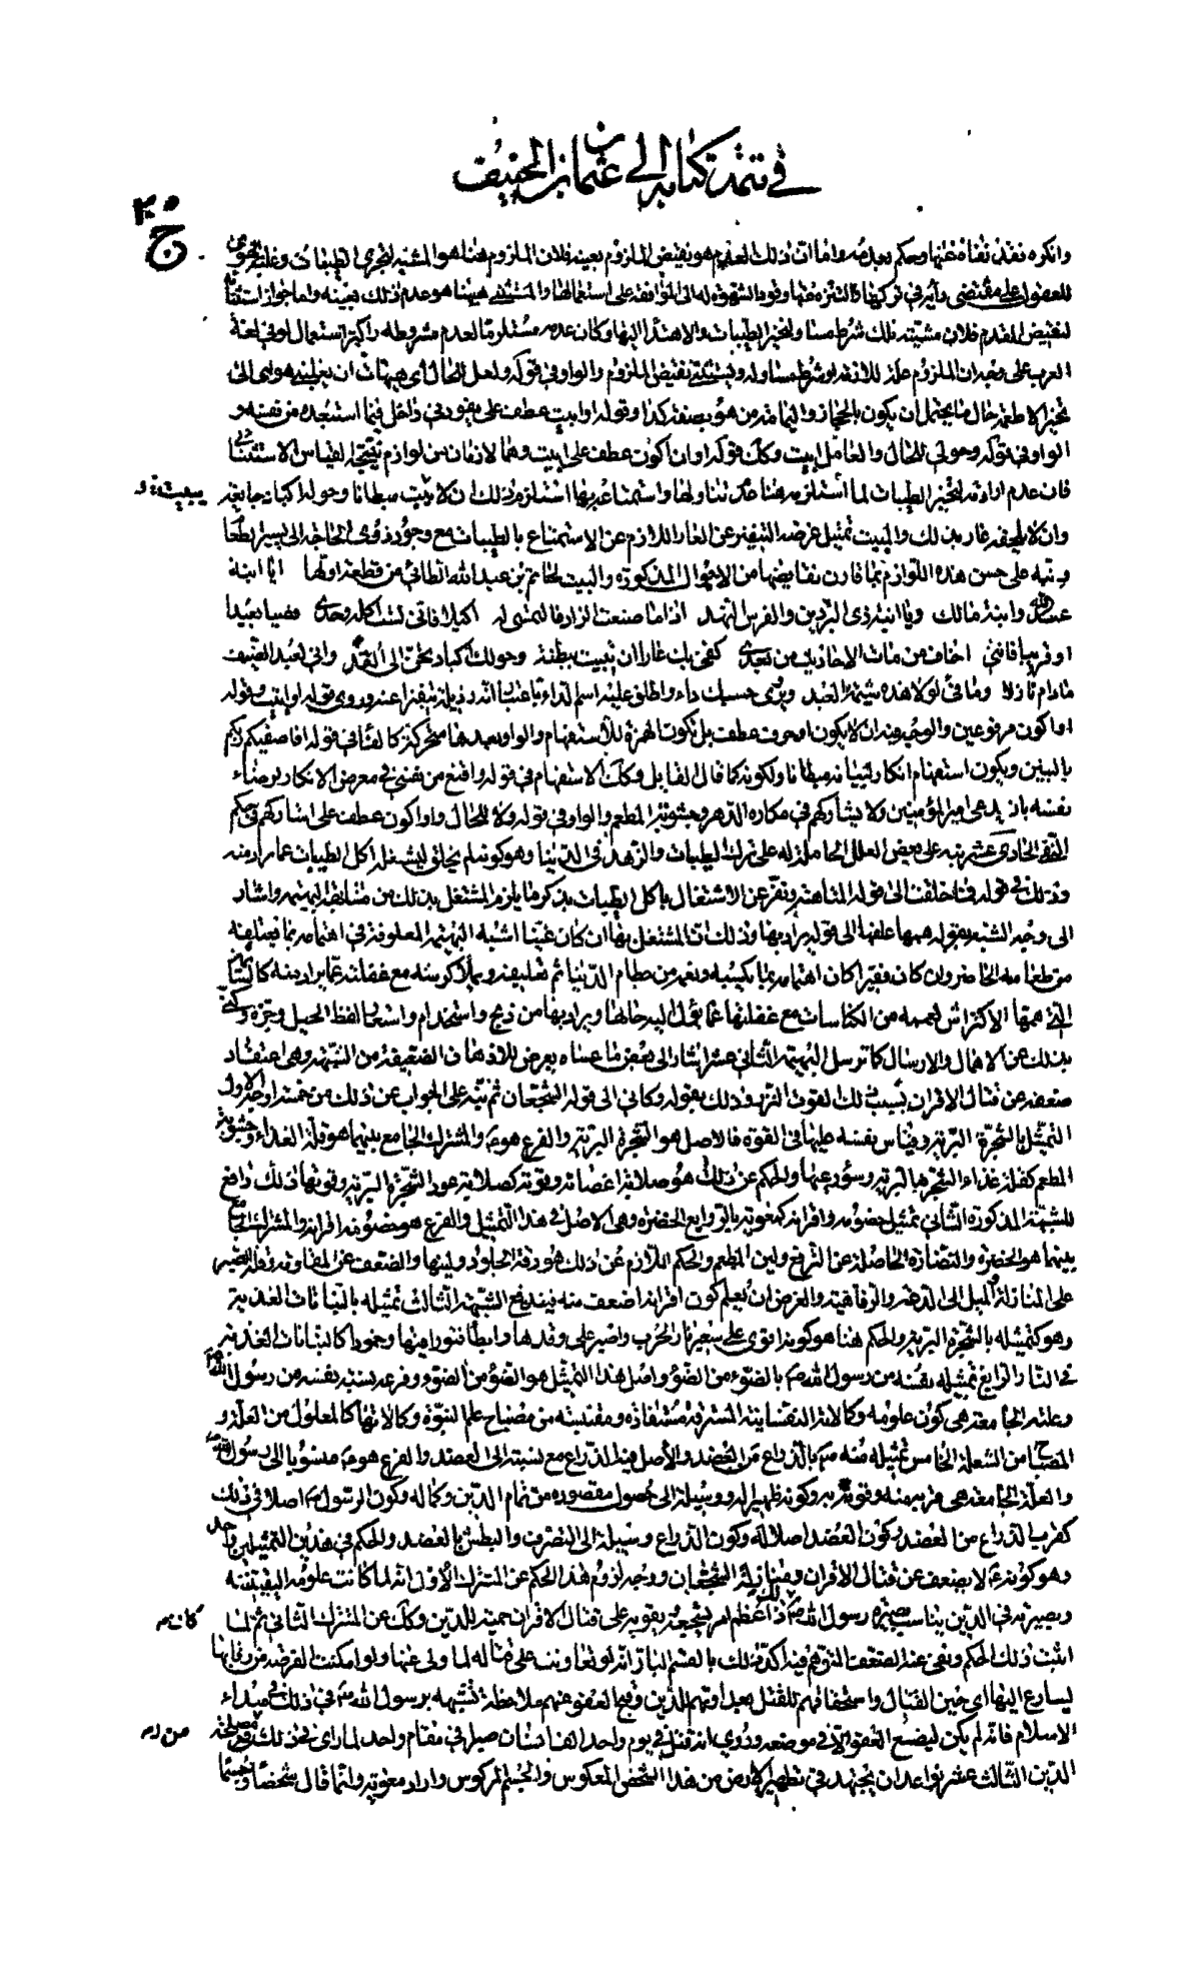 في تتمة كتابه الى عثمان بن الحنيف
ج
وانكره نفذ نفاه عنها وحكم بعدمه واما ان ذلك العدم هو نقيض الملزوم بعينه فلان الملزوم هنا هو المشية لتحرى الطيبات وغلبة هوى
للعقول على مقتضى رأيه في تركها والتنزه عنها وقود الشهوة له الى الموافقة على استعمالها والمستثنى هيهنا هو عدم ذلك بعينه واما جواز استثناء
لنقيض المقدم فلان مشيته تلك شرط مساو لتخير الطيبات والاهتداء اليها وكان عدمه مستلزما لعدم مشروطه واكثر استعمال لو في لغة
العرب على وفق ان الملزوم علة للازمه او شرط مساو له ويستثنى نقيض الملزوم والواو في قوله ولعل للحال اى هيهات ان يغلبنى هواى الى
تخير الاطعمة حال ما يحتمل ان يكون بالحجاز واليمامة من هو بصفة كذا وقوله او ابيت عطف على يقودنى داخل فيما استبعده من نفسه و
الواو في قوله وحولى للحال والعامل ابيت وكك قوله او ان اكون عطف على ابيت وهما لازمان من لوازم نتيجة القياس الاستثنائى
فان عدم ارادته لتخير الطيبات لما استلزم هنا عدم تناولها واستمتاعه بها استلزم ذلك ان لا يبيت مبطانا وحوله اكباد جايعة
يبيت
وان لا يلحقه عار بذلك والبيت تمثيل غرضه التنفير عن العار اللازم عن الاستمتاع بالطيبات مع وجود ذوى الحاجة الى يسير الطعام
ونبه على حسن هذه اللوازم بما قارن نقايضها من الاحوال المذكورة والبيت لحاتم بن عبد الله الطائى من قطعة اولها ايا ابنة
عبد الله وابنة مالك ويا ابنة ذى البردين والفرس النهد اذا ما صنعت الزاد فالتمسى له اكيلا فانى لست آكله وحدى قصيا بعيدا
او قريبا فاننى اخاف من مذمات الاحاديث من بعدى كفى بك عارا ان تبيت ببطنة وحولك اكباد تحن الى القد وانى لعبد الضيف
ما دام نازلا وما فىّ لولا هذه شيمة العبد ويروى حسبك داء واطلق عليه اسم الداء باعتبار انه رذيلة تنفيرا عنه وروى قوله او ابيت وقوله
او اكون مرفوعين والوجه فيه ان لا يكون او حرف عطف بل تكون الهمزة للاستفهام والواو بعدها متحركة كالفاء في قوله افاصفيكم ربكم
بالبنين ويكون استفهام انكار لبياته مبطانا ولكونه كما قال القايل وكك الاستفهام في قوله واقنع من نفسى في معرض الانكار لرضاء
نفسه بان يدعى امير المؤمنين ولا يشاركهم في مكاره الدهر وجشوبة المطعم والواو في قوله ولا للحال واو اكون عطف على اشاركهم في حكم
النفى الحادى عشر نبه على بعض العلل الحاملة له على ترك الطيبات والزهد في الدنيا وهو كونه لم يخلق ليشغله اكل الطيبات عما يراد منه
وذلك في قوله فما خلقت الى قوله المتاهة ونفر عن الاشتغال باكل الطيبات بذكر ما يلزم المشتغل بذلك من مشابهة البهيمة واشار
الى وجه الشبه بقوله همها علفها الى قوله يراد بها وذلك ان المشتغل بها ان كان غنيا اشبه البهيمة المعلوفة في اهتمامه بما يعتلفه
من طعامه الحاضر وان كان فقيرا كان اهتمامه بما يكتسبه ويقمه من حطام الدنيا ثم تعليفه ويملا كرشه مع غفلته عما يراد منه كالسائمة
التى همها الاكتراش لجمعه من الكناسات مع غفلتها عما يؤل اليه حالها ويراد بها من ذبح واستخدام واستعار لفظ الحبل وجره وكنى
بذلك عن الاهمال والارسال كما ترسل البهيمة الثانى عشر اشار الى بعض ما عساه يعرض للاذهان الضعيفة من الشبهة وهى اعتقاد
ضعفه عن قتال الاقران بسبب ذلك القوت النزر وذلك بقوله وكانى الى قوله الشجعان ثم نبه على الجواب عن ذلك من خمسة اوجه الاول
التمثل بالشجرة البرية وقياس نفسه عليها في القوة فالاصل هو الشجرة البرية والفرع هو ع والمشترك الجامع بينهما هو قلة الغذاء وجشوبة
المطعم كقلة غذاء الشجرة البرية وسوء رعيها والحكم عن ذلك هو صلابة اعضائه وقوته كصلابة عود الشجرة البرية وقوتها ذلك دافع
للشبهة المذكورة الثانى تمثيل خصومه واقرانه كمعوية بالروايع الخضرة وهى الاصل في هذا التمثيل والفرع هو خصومه اقرانه والمشترك الجامع
بينهما هو الخضرة والنضارة الحاصلة عن الترفع ولين المطعم والحكم اللازم عن ذلك هو رقة الجلود ولينها والضعف عن المقاومة وقلة الصبر
على المنازلة والميل الى الدعة والرفاهية والغرض ان يعلم كون اقرانه اضعف منه فيندفع الشبهة الثالث تمثيله بالنباتات العذية
وهو كتمثيله بالشجرة البرية والحكم هنا هو كونه اقوى على سعير نار الحرب واصبر على وقدها وابطأ فتورا فيها وخمودا كالنباتات العذية
في النار الرابع تمثيله نفسه من رسول الله ص بالضوء من الضوء واصل هذا التمثيل هو الضوء من الضوء وفرعه نسبة نفسه من رسول الله ص
وعلته الجامعة هى كون علومه وكمالاته النفسانية المشرقة مستفادة ومقتبسة من مصباح علم النبوة وكمالاتها كالمعلول من العلة و
المصباح من الشعلة الخامس تمثيله منه ص بالذراع من العضد والاصل فيه الذراع مع نسبته الى العضد والفرع هو ع منسوبا الى رسول الله ص
والعلة الجامعة هى قربه منه وقوته به وكونه ظهيرا له ووسيلة الى حصول مقصوده من تمام الدين وكماله وكون الرسول ص اصلا في ذلك
كقرب الذراع من العضد وكون العضد اصلا له وكون الذراع وسيلة الى التصرف والبطش بالعضد والحكم في هذين التمثيلين واحد
وهو كونه ع لا يضعف عن قتال الاقران ومنازلة الشجعان ووجه لزوم هذا الحكم عن المشترك الاول انه لما كانت علومه اليقينية
وبصيرته في الدين يناسب بصيرة رسول الله ص ذا اعظم امر يشجعه ويقويه على قتال الاقران حمية للدين وكك عن المشترك الثانى ثم لما
كانه
اثبت ذلك الحكم ونفى عنه الضعف المتوهم فيه اكد ذلك بالقسم البار انه لو تعاونت على قتاله لما ولى عنها ولو امكنت الفرصة من رقابها
ليسارع اليها اى حين القتال واستحقاقهم للقتل بعداوتهم الدين وقبح العفو عنهم ملاحظة لتشبهه برسول الله ص في ذلك في مبداء
الاسلام فانه لم يكن ليضع العفو الا في موضعه وروى انه قتل في يوم واحد الف انسان صبرا في مقام واحد لما راى في ذلك من مصلحة
من
الدين الثالث عشر تواعد ان يجتهد في تطهير الارض من هذا الشخص المعكوس والجسم المركوس واراد معوية وانما قال شخصا وجسما